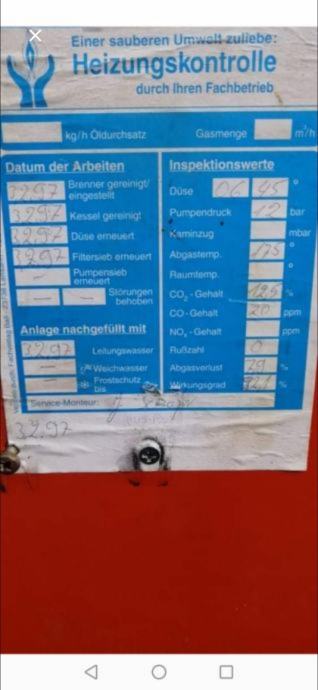 Einer sauberen Umwelt zuliebe:
Heizungskontrolle
durch Ihren Fachbetrieb
kg/h Öldurchsatz
Gasmenge m³/h
Datum der Arbeiten
3.2.97 Brenner gereinigt/
eingestellt
3.2.97 Kessel gereinigt
3.2.97 Düse erneuert
3.2.97 Filtersieb erneuert
– Pumpensieb
erneuert
– – Störungen
behoben
Anlage nachgefüllt mit
3.2.97 Leitungswasser
– Weichwasser
– Frostschutz
bis
Inspektionswerte
Düse 0.6 45 °
Pumpendruck 12 bar
Kaminzug mbar
Abgastemp. 175 °
Raumtemp. °
CO₂-Gehalt 12,5 %
CO-Gehalt 20 ppm
NOₓ-Gehalt ppm
Rußzahl 0
Abgasverlust %
Wirkungsgrad %
Service-Monteur:
3.2.97